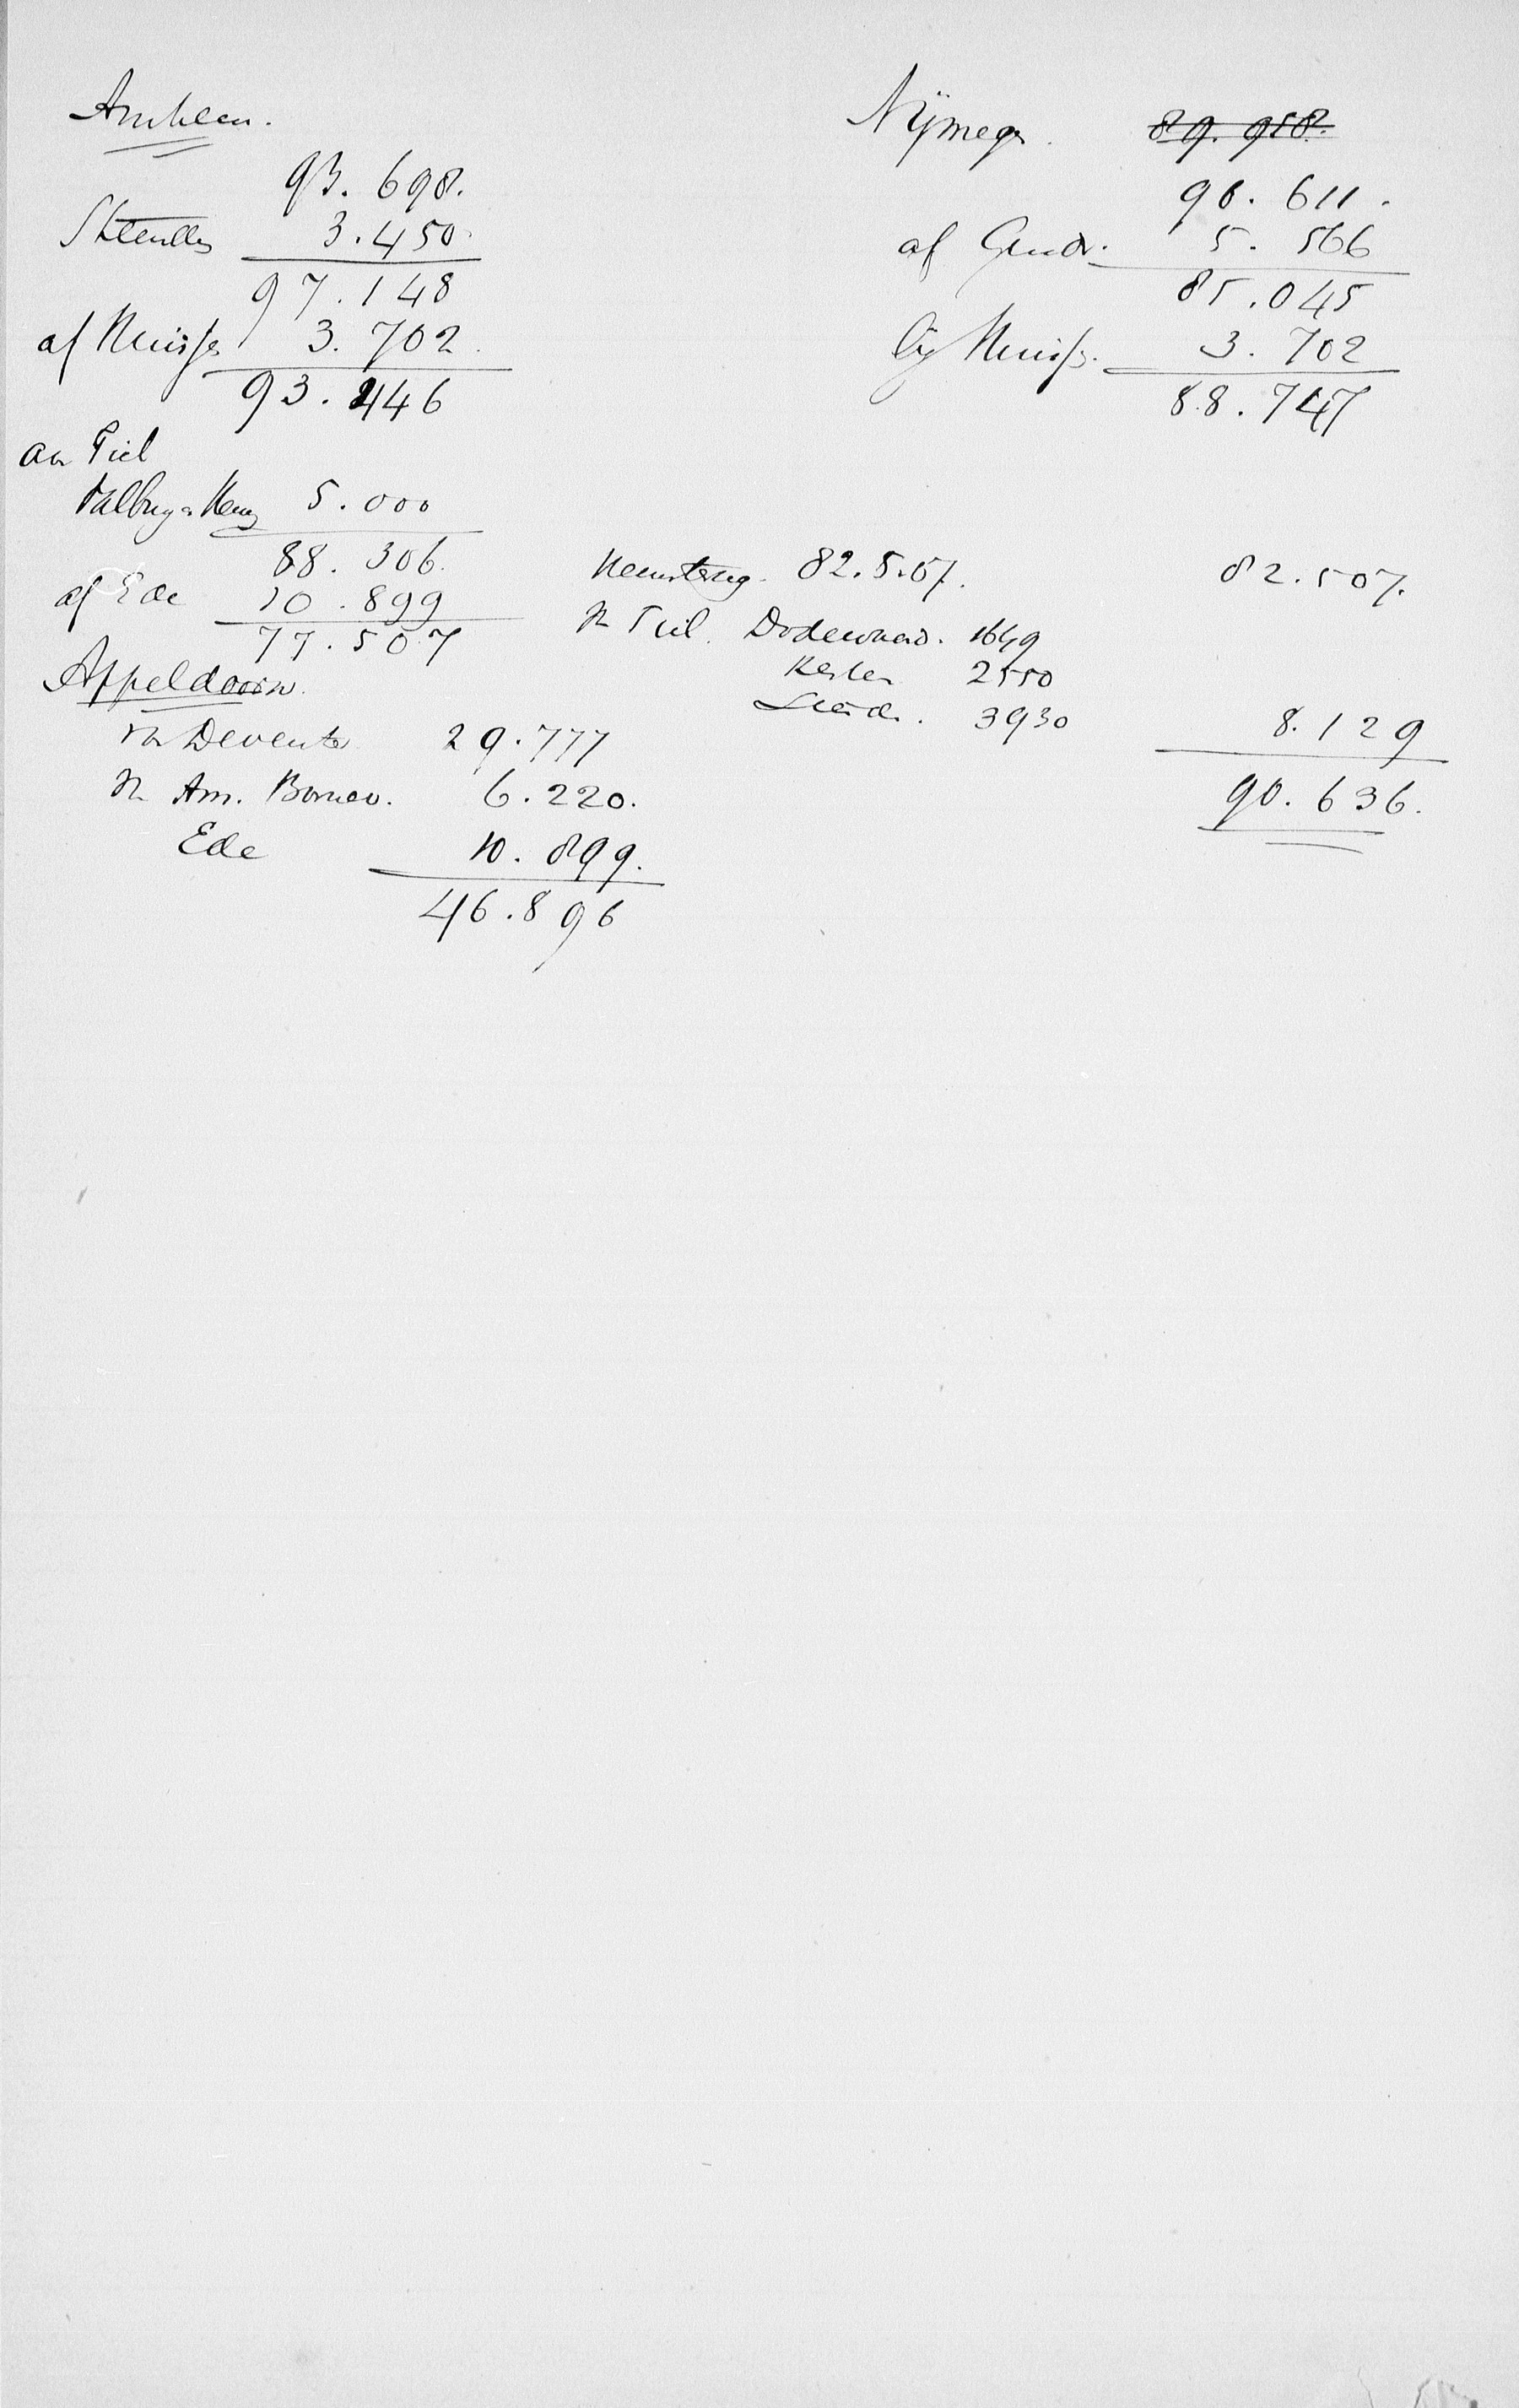 Arnhem.
93.698.
3.450.
97.148
af Huisse 3.702.
93.446
aan Tiel
5.000
88.306.
af Ede 10.899
77.507
Neemterug. 82.5.07.
N Tiel. Dodewaard. 1649
Kesten 2550
3930
Appeldoorn.
van Deventer 29.777
N Am. Borneo. 6.220.
Ede 10.899.
46.896
Nÿmegen. 89.958.
90.611.
af Gendt. 5.566
85.045
bÿ Huisse. 3.702
88.747
82.507.
8.129
90.636.